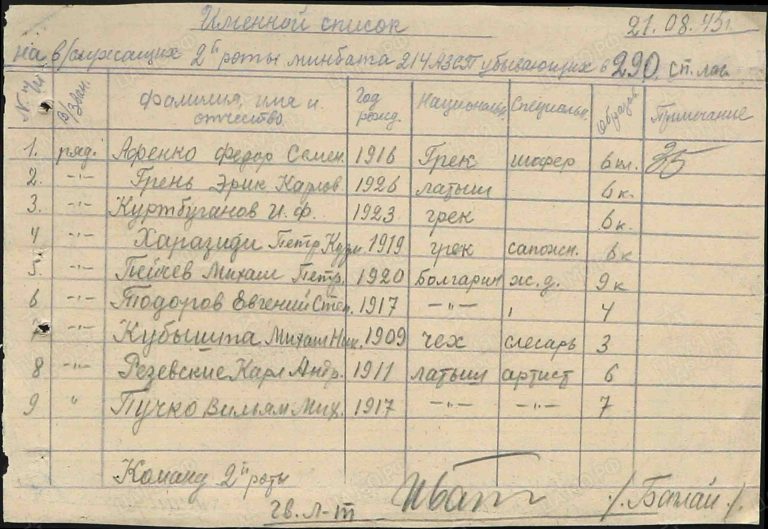 Именной список 21.08.45г.
на в/служащих 2й роты минбата 214 АЗСП убывающих в 290 сп. лаг.
№№ п/п в/зван. фамилия, имя и отчество Год рожд. Националь. Специальн. Образов. Примечание
1. ряд. Афенко Федор Семен. 1916 Грек шофер 6 кл. 35
2. -"- Грень Эрик Карлов. 1926 латыш 6 к.
3. -"- Куртбуганов И. Ф. 1923 грек 6 к.
4 -"- Харазиди Петр Кузм. 1919 грек сапожн. 6 к
5 -"- Пейчев Михаил Петр. 1920 Болгарин ж.д. 9 к
6 -"- Тодоров Евгений Степ. 1917 -"- 4
7 -"- Кубышта Михаил Ник. 1909 чех слесарь 3
8 -"- Резевские Карл Андр. 1911 латыш артист 6
9 " Пучко Вильям Мих. 1917 -"- -"- 7
Команд 2й роты
гв. л-т /Балай/